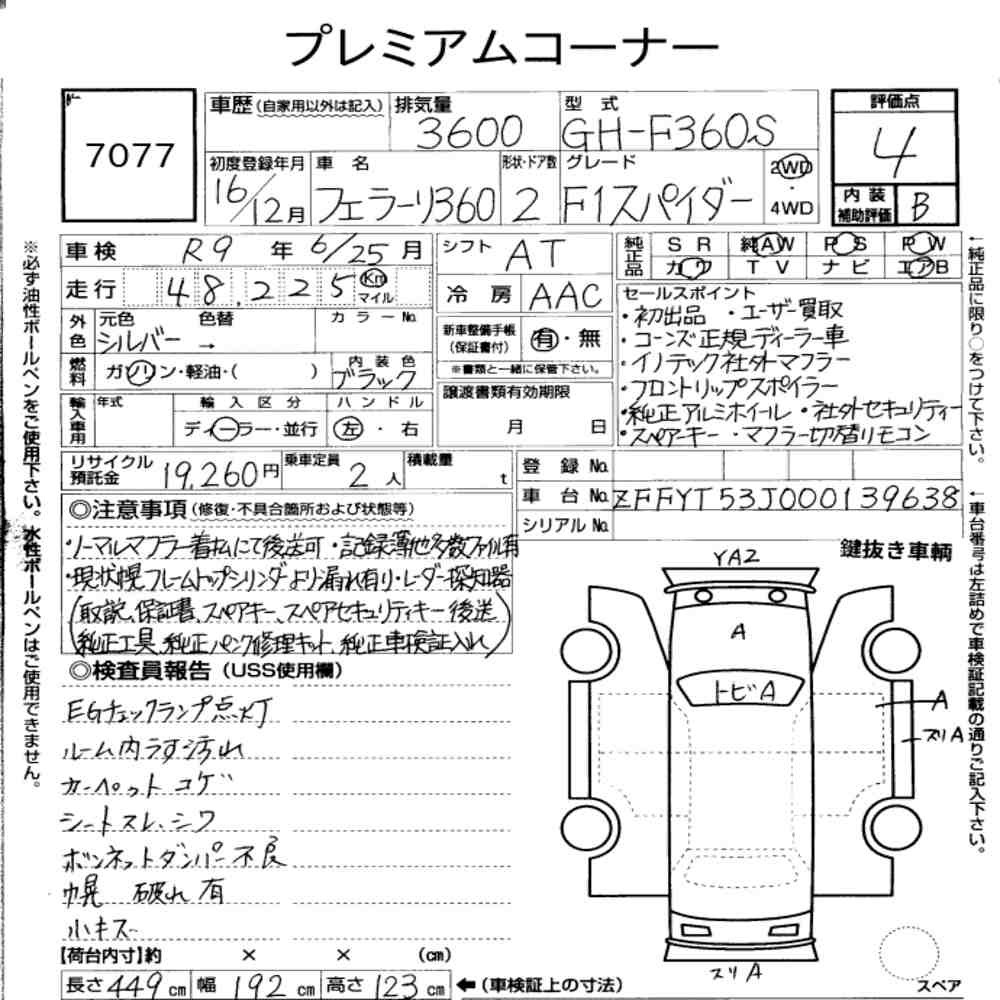 プレミアムコーナー
7077
車歴（自家用以外は記入）
排気量
3600
型式
GH-F360S
評価点
4
内装
補助評価
B
初度登録年月
16/12月
車名
フェラーリ360
形状・ドア数
2
グレード
F1スパイダー
2WD
・
4WD
車検 R9 年 6/25 月
走行 48,225 Km
マイル
シフト AT
冷房 AAC
純正品
SR 純AW PS PW
カワ TV ナビ エアB
外色
元色
色替
カラーNo.
シルバー →
燃料
ガソリン・軽油・( )
内装色
ブラック
新車整備手帳
（保証書付）
有・無
※書類と一緒に保管下さい。
輸入車用
年式
輸入区分
ハンドル
ディーラー・並行
左・右
譲渡書類有効期限
月 日
セールスポイント
・初出品 ・ユーザー買取
・コーンズ正規ディーラー車
・イノテック社外マフラー
・フロントリップスポイラー
・純正アルミホイール ・社外セキュリティー
・スペアーキー ・マフラー切替リモコン
リサイクル
預託金
19,260円
乗車定員
2人
積載量
t
登録No.
車台No. ZFFYT53J000139638
シリアルNo.
◎注意事項（修復・不具合箇所および状態等）
・ノーマルマフラー着払にて後送可 ・記録簿他多数ファイル有
・現状幌フレームトップシリンダより漏れ有り・レーダー探知器
(取説、保証書、スペアキー、スペアセキュリティキー後送)
(純正工具、純正パンク修理キット、純正車検証入れ)
◎検査員報告（USS使用欄）
EGチェックランプ点灯
ルーム内ラす汚れ
カーペットコゲ
シートスレ、シワ
ボンネットダンパー不良
幌 破れ有
小キズ
【荷台内寸】約 × × （cm）
長さ 449 cm 幅 192 cm 高さ 123 cm ←（車検証上の寸法）
鍵抜き車輌
YA2
A
トビA
A
スリA
スリA
スペア
※必ず油性ボールペンをご使用下さい。水性ボールペンはご使用できません。
←純正品に限り○をつけて下さい。
←車台番号は左詰めで車検証記載の通りご記入下さい。